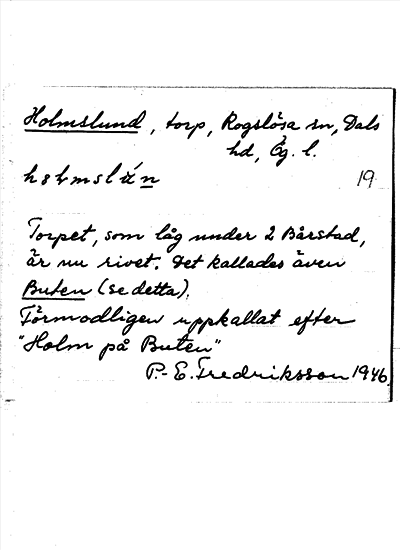 Holmslund, torp, Rogslösa sn, Dals
hd, Ög. l.
19
Torpet, som låg under 2 Bårstad,
är nu rivet. Det kallades även
Buten (se detta).
Förmodligen uppkallat efter
"Holm på Buten"
P.-E. Fredriksson 1946.